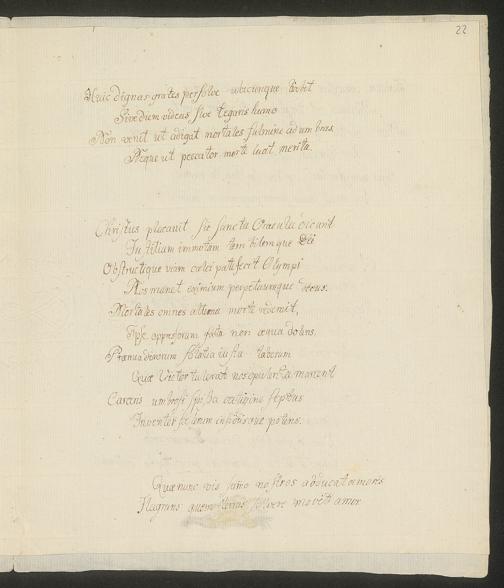 22
Huic dignas grates persolve ubicunque
Sive dum vivus sive tegaris humo
Non venit ut adigat mortales fulmine ad umbras
Neque ut peccator morte luat merita.
Christus placavit sic sancta Oracula dicunt
Justitiam immotam terribilemque Dei
Obstructique viam caeli patefecit Olympi
Nos manet eximium perpetuumque decus.
Mortales omnes altima morte redemit,
Ipse oppressorum fata non aequa dolens.
Praemia divorum solatia justa laborum
Quae Victor tulerat nos opulenta manent
Carceris umbrosi spissa caligine septus
Inventor scelerum insidiisque potens.
Quae nunc vis
Flagrans quem solvere movet amor